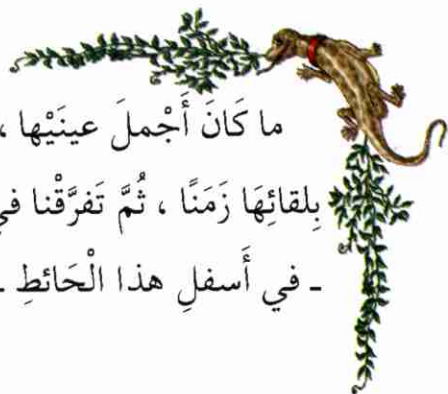 ما كَانَ أَجْملَ عينَيْها ،
بِلقائِهَا زَمَنًا ، ثُمَّ تَفرَّقْنا في
ـ في أَسفلِ هذا الْحَائطِ ـ